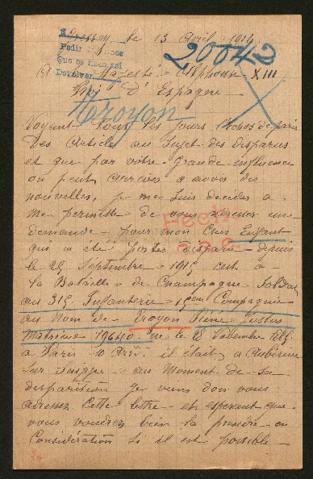 le 13 Avril 1916
20042
A Sa Majesté Alphonse XIII
Roi d'Espagne
Troyon
Voyant tous les jours Echos de Paris
des Articles au Sujet des disparus
et que par votre grande influence
on peut arriver a avoir des
nouvelles, je me suis décidée a
me permettre de vous adresser une
demande pour mon Cher Enfant
qui a été porté disparu depuis
le 25 Septembre 1915 c'est a
la Bataille de Champagne Soldat
au 315 Infanterie Compagnie
au Nom de Troyon
Matricule 19640 Né le 18
a Paris 10 Arr. il était a Auberive
Sur Suippe au Moment de Sa
disparition Je viens donc vous
adresser Cette lettre et esperant que
vous voudrez bien la prendre en
Considération Si il est possible